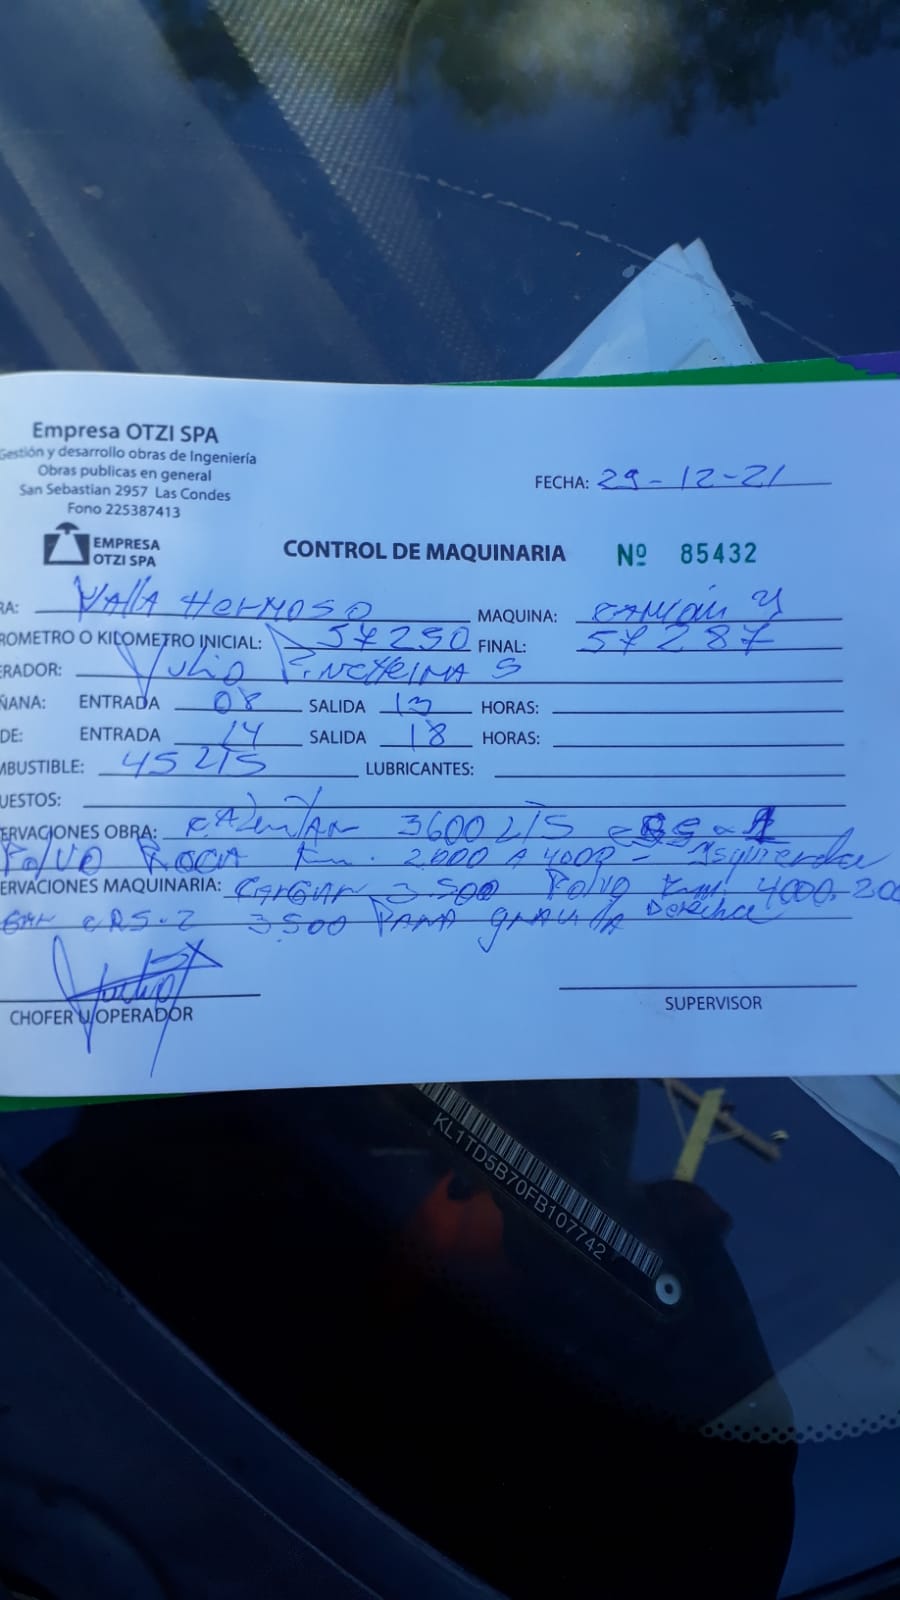 Empresa OTZI SPA
Gestión y desarrollo obras de Ingeniería
Obras publicas en general
San Sebastian 2957 Las Condes
Fono 225387413
FECHA: 29-12-21
EMPRESA
OTZI SPA
CONTROL DE MAQUINARIA Nº 85432
RA: Valle Hermoso MAQUINA: CAMIÓN
ROMETRO O KILOMETRO INICIAL: 57250 FINAL: 57287
ERADOR: Julio S
ÑANA: ENTRADA 08 SALIDA 13 HORAS:
DE: ENTRADA 14 SALIDA 18 HORAS:
MBUSTIBLE: 45 LTS LUBRICANTES:
UESTOS:
ERVACIONES OBRA: 3600 LTS
POLVO ROCA Km. 2.000 A 4000 -
ERVACIONES MAQUINARIA: CARGAR 3.500 Polvo Km. 4000.200
CRS-2 3.500 PARA gravilla Derecha
CHOFER U OPERADOR
SUPERVISOR
KL1TD5B70FB107742